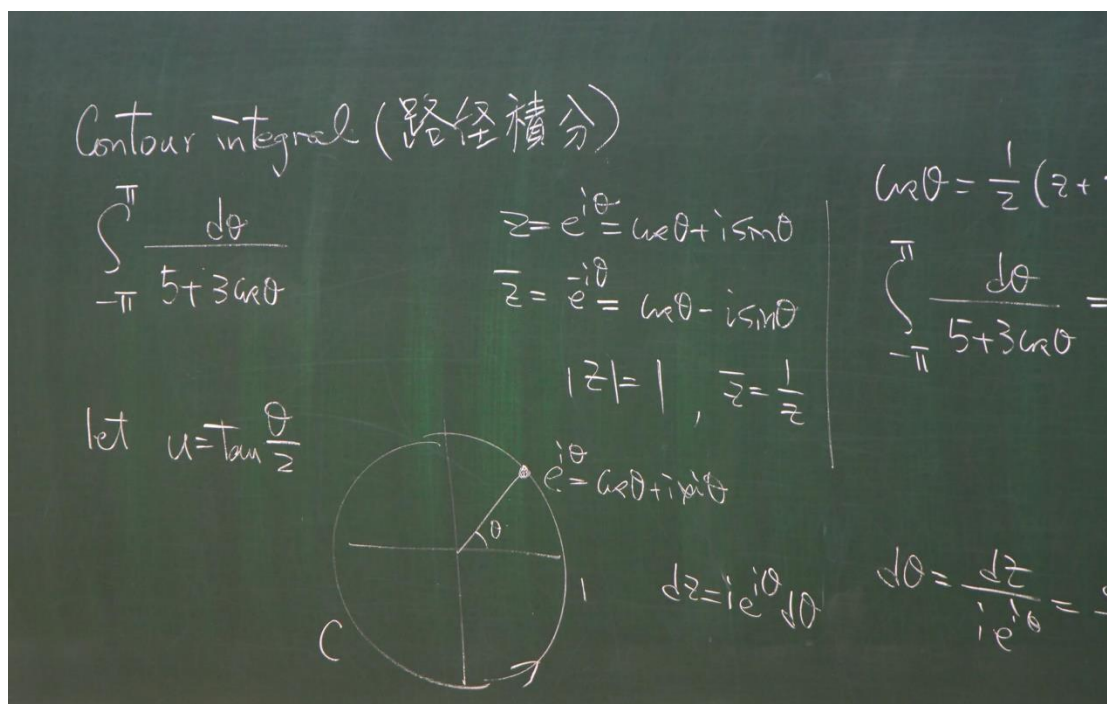 Contour integral (路径積分)
∫_{-π}^{π} dθ / (5+3cosθ)
let u=tan θ/2
z=e^{iθ}=cosθ+isinθ
z̄=e^{-iθ}=cosθ-isinθ
|z|=1, z̄=1/z
e^{iθ}=cosθ+isinθ
θ
1
C
dz=ie^{iθ}dθ
cosθ=1/2(z+
∫_{-π}^{π} dθ / (5+3cosθ) =
dθ=dz/(ie^{iθ})=